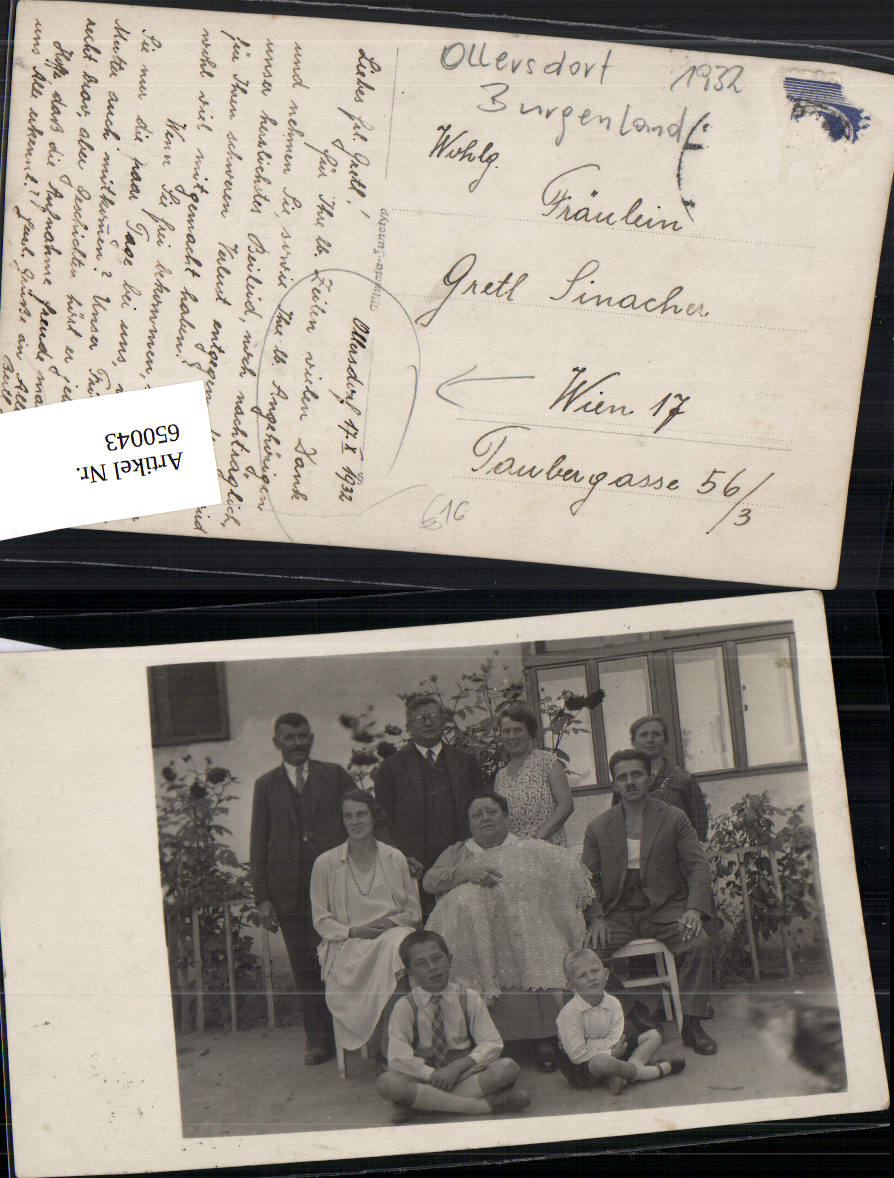 Ollersdorf 1932
Burgenland
Wohlg.
Fräulein
Gretl Sinacher
Wien 17
Taubergasse 56/3
616
Ollersdorf 17. X 1932
Liebes Frl. Gretl!
Für Ihre lb. Zeilen vielen Dank
und nehmen Sie, sowie Ihre lb. Angehörigen
unser herzlichstes Beileid, noch nachträglich,
für Ihren schweren Verlust entgegen.
wohl viel mitgemacht haben.
Wenn Sie frei bekommen,
Sie nur die paar Tage bei uns,
Mutter auch mitkom̅en? Unser
recht brav, aber Geschichten hört er
Hoffe, daß die Aufnahme freude
uns Alle erkennt?
Grüße an Alle
Artikel Nr.
650043